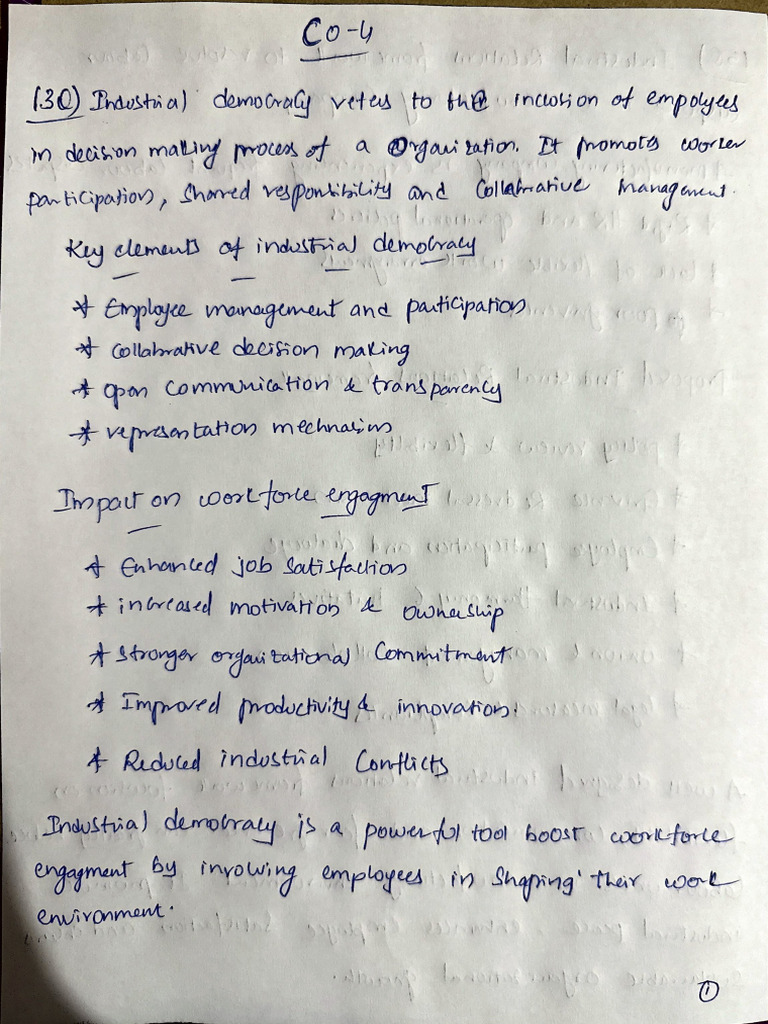 CO-4
13C) Industrial democracy refers to the inclusion of empolyees
in decision making process of a Organization. It promotes worker
participation, shared responsibility and Collabrative management.
Key elements of industrial democracy
* Employee management and participation
* Collabrative decision making
* open communication & transparency
* representation mechnasim
Impact on workforce engagment
* Enhanced job satisfaction
* increased motivation & ownership
* stronger organizational Commitment
* Improved productivity & innovation.
* Reduced industrial Conflicts
Industrial democracy is a powerful tool boost workforce
engagment by involving employees in shaping their work
environment.
1